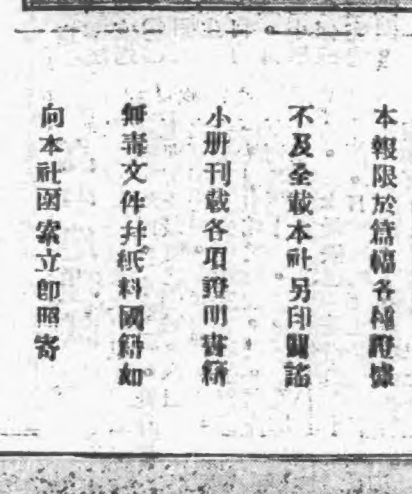 本報限於篇幅各種證據
不及全載本社另印闢謠
小册刊載各項證明書籍
無毒文件幷紙料國籍如
向本社函索立卽照寄